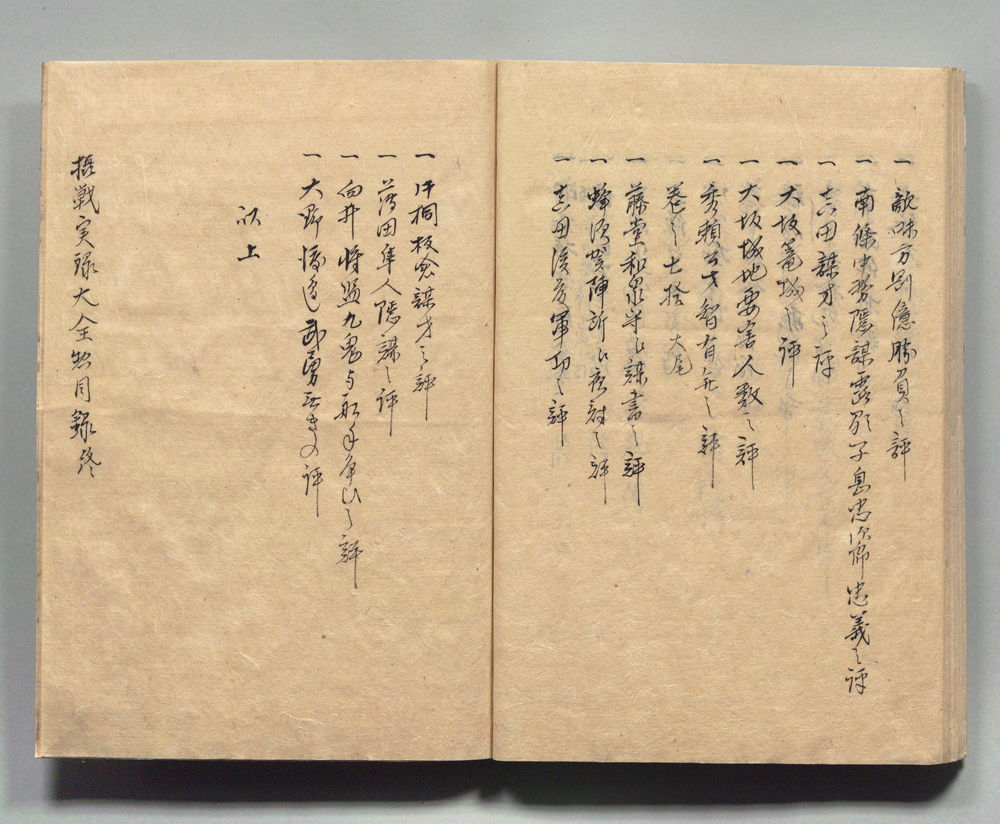 一 敵味方剛億勝負之評
一 南條中務隠謀露顕子息忠次郎忠義之評
一 真田謀才之評
一 大坂篭城之評
一 大坂城地要害人数之評
一 秀頼公才智有無之評
巻之七拾 大尾
一 藤堂和泉守江謀書之評
一 蜂須賀陣所江夜討之評
一 真田後度軍功之評
一 片桐板倉謀才之評
一 薄田隼人隠謀之評
一 向井将監九鬼与船手争ひ之評
一 大野修道武勇無きの評
以上
摂戦実録大全惣目録終